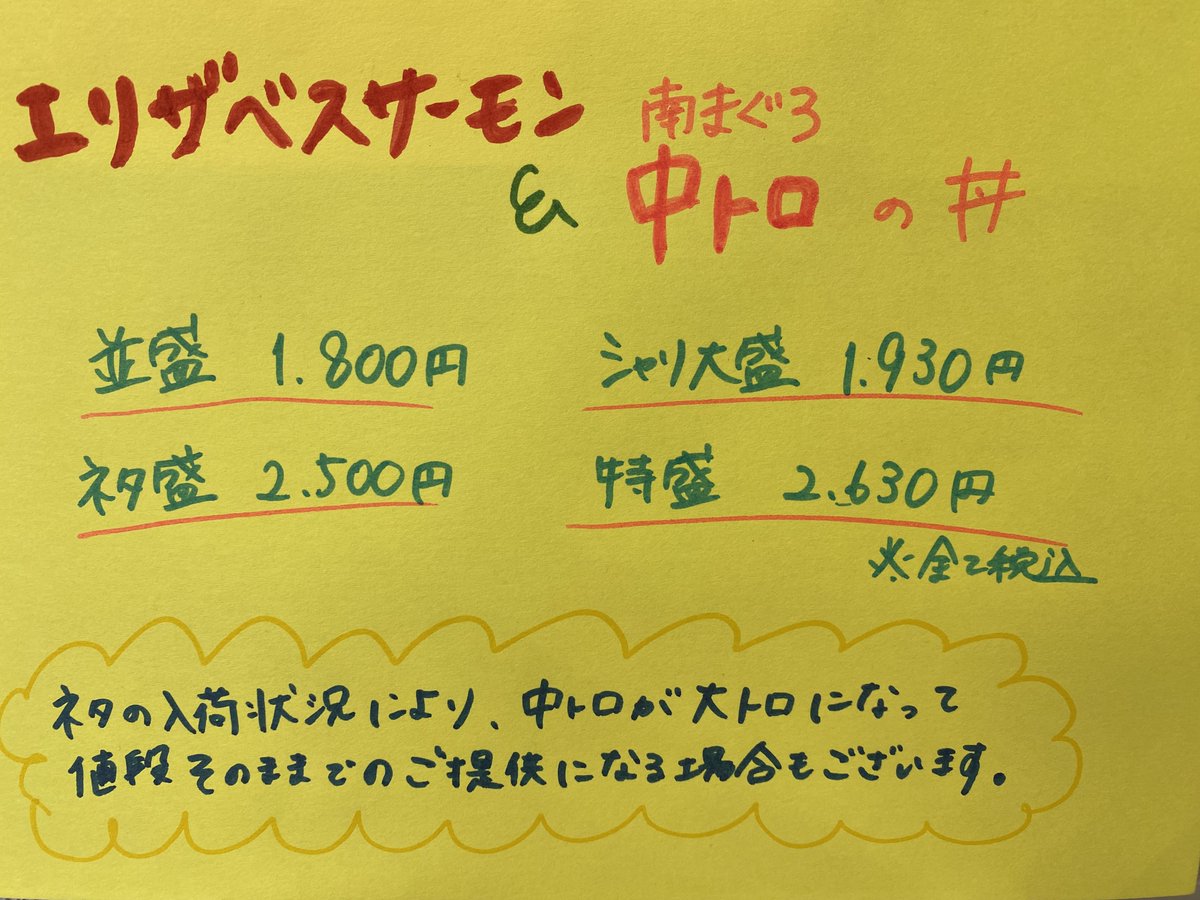 エリザベスサーモン
南まぐろ
& 中トロ の 丼
並盛 1.800円
シャリ大盛 1.930円
ネタ盛 2.500円
特盛 2.630円
※全て税込
ネタの入荷状況により、中トロが大トロになって
値段そのままでのご提供になる場合もございます。